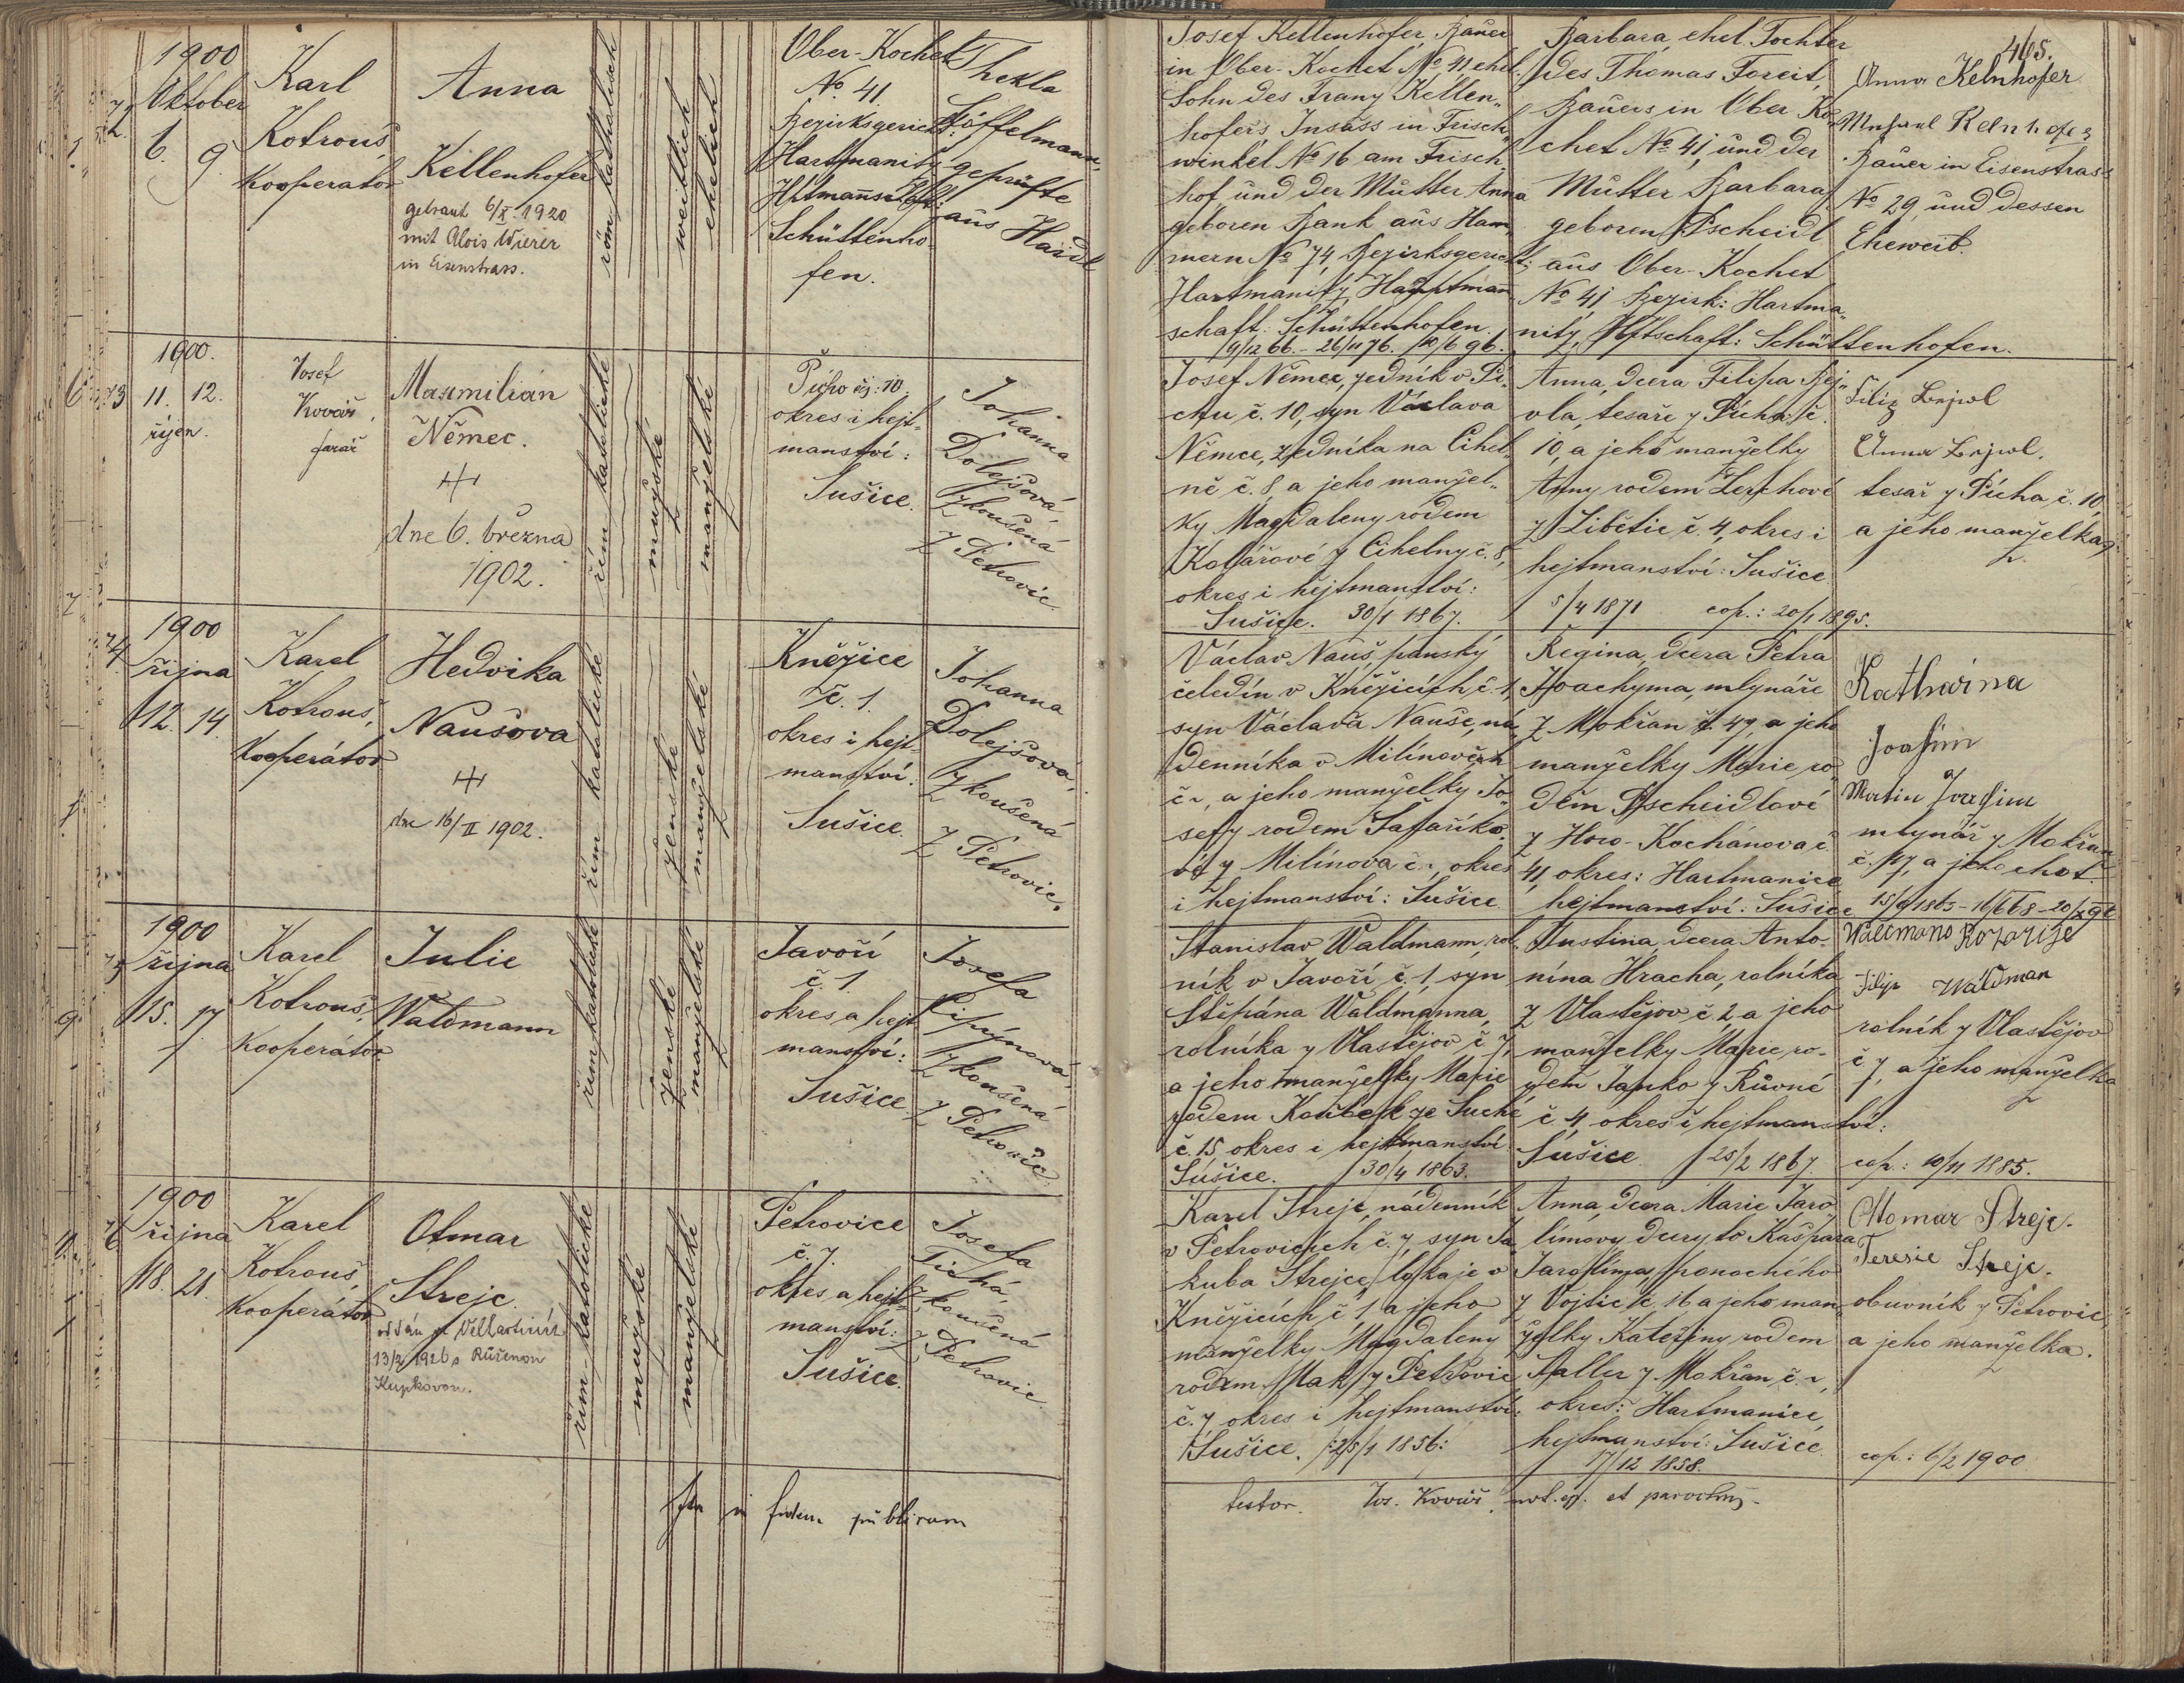 465.
1900
Oktober
6. 9.
Karl
Kotrouš
Kooperator
Anna
Kellenhofer
getraut 6/X. 1920
mit Alois Wierer
in Eisenstrass.
röm. katholisch
weiblich
ehelich
Ober-Kochet
No. 41.
Bezirksgericht:
Hartmanitz
Schüttenho-
fen.
Thekla
Löffelmann,
geprüfte
aus Haidl
Josef Kellenhofer, Bauer
in Ober-Kochet No 41 ehel.
Sohn des Franz Kellen-
hofers, Insass in Frisch-
winkel No 16 am Frisch
hof, und der Mutter Anna
geboren Bank aus Ham
mern No 74, Bezirksgericht:
Hartmanitz, Hauptmann
schaft: Schüttenhofen.
Barbara, ehel. Tochter
des Thomas Foreit,
Bauers in Ober Ko-
chet No 41, und der
Mutter Barbara
geboren Pscheidl
aus Ober-Kochet
No 41 Bezirk: Hartma-
nitz, Hptschaft: Schüttenhofen.
Anna Kelnhofer
Kelnhofer
Bauer in Eisenstrass
No 29, und dessen
Eheweib.
1900.
73 11. 12.
říjen.
Josef
Kovář,
farář
Maxmilián
Němec.
dne 6. března
1902.
řím. katolické
mužské
manželské
Pícho čj: 10
okres i hejt-
manství:
Sušice.
Johanna
Dolejšová,
zkoušená
z Petrovic.
Josef Němec, zedník v Pí-
chu č. 10, syn Václava
Němce, zedníka na Cihel-
ně č. 8 a jeho manžel-
ky Magdaleny rodem
Kolářové z Cihelny č. 8,
okres i hejtmanství:
Sušice. 30/1 1867.
Anna, dcera Filipa Bej-
vla, tesaře z Pícha č.
10, a jeho manželky
Anny rodem Lerchové
z Libětic č. 4, okres i
hejtmanství: Sušice
5/4 1871 cop.: 20/1 1895.
Filip Bejwl
Anna Bejwl.
tesař z Pícha č. 10,
a jeho manželka
1900
74 října
12. 14.
Karel
Kotrouš,
Kooperátor
Hedvika
Naušova
dne 16/II 1902.
řím. katolické
ženské
manželské
Kněžice
č. 1.
okres i hejt-
manství:
Sušice.
Johanna
Dolejšová,
zkoušená
z Petrovic.
Václav Nauš, panský
čeledín v Kněžicích č. 1
syn Václava Nauše, ná-
denníka v Milínově
a jeho manželky Jo-
sefy rodem Šafaříko-
vé z Milínova okres
i hejtmanství: Sušice
Regina, dcera Petra
Joachyma, mlynáře
z Mokřan č. 47, a jeho
manželky Marie ro-
dem Pscheidlové
z Hořo-Kochánova č.
41, okres: Hartmanice
hejtmanství: Sušice
Katharina
Joachim
Martin Joachim
mlynář z Mokřan
č. 47, a jeho chot.
1900
75 října
15. 17.
Karel
Kotrouš,
Kooperátor
Julie
Waldmann
řím. katolické
ženské
manželské
Javoří
č. 1.
okres a hejt
manství:
Sušice.
Josefa
zkoušená
z Petrovic
Stanislav Waldmann, rol-
ník v Javoří č. 1, syn
Štěpána Waldmanna,
rolníka z Vlastějov č. 7,
a jeho manželky Marie
rodem Koubek ze Suché
č. 15, okres i hejtmanství
Sušice. 30/4 1863.
Justina, dcera Anto-
nína Hracha, rolníka
z Vlastějov č. 2 a jeho
manželky Marie ro-
dem Janko z Růvné
č. 4, okres i hejtmanství:
Sušice 25/2 1867. cop.: 10/11 1885.
Waldmano Rozarije
Filip Waldman
rolník z Vlastějov
č. 7, a jeho manželka
1900
76 října
18. 21.
Karel
Kotrouš,
Kooperátor
Otmar
Strejc.
oddán ve Velhartících
13/2 1926 s Růženou
Kupkovou.
řím. katolické
mužské
manželské
Petrovice
č. 7.
okres a hejt-
manství:
Sušice.
Josefa
Tichá,
zkoušená
z Petrovic
Karel Strejc, nádenník
v Petrovicích č. 7, syn Ja-
kuba Strejce, lokaje v
Kněžicích č. 1, a jeho
manželky Magdaleny
rodem Mak z Petrovic
č. 7 okres i hejtmanství:
Sušice. 25/1 1856:
Anna, dcera Marie Jaro-
límovy, dcery to Kašpara
Jarolíma,
z Vojtic č. 16 a jeho man-
želky Kateřiny rodem
Faller z Mokřan
okres: Hartmanice,
hejtmanství: Sušice.
17/12 1858.
Otomar Strejc.
Teresie Strejc.
obuvník z Petrovic,
a jeho manželka.
cop.: 6/2 1900
in fidem publicam
testor. Jos. Kovář, not. ep. et parochus.